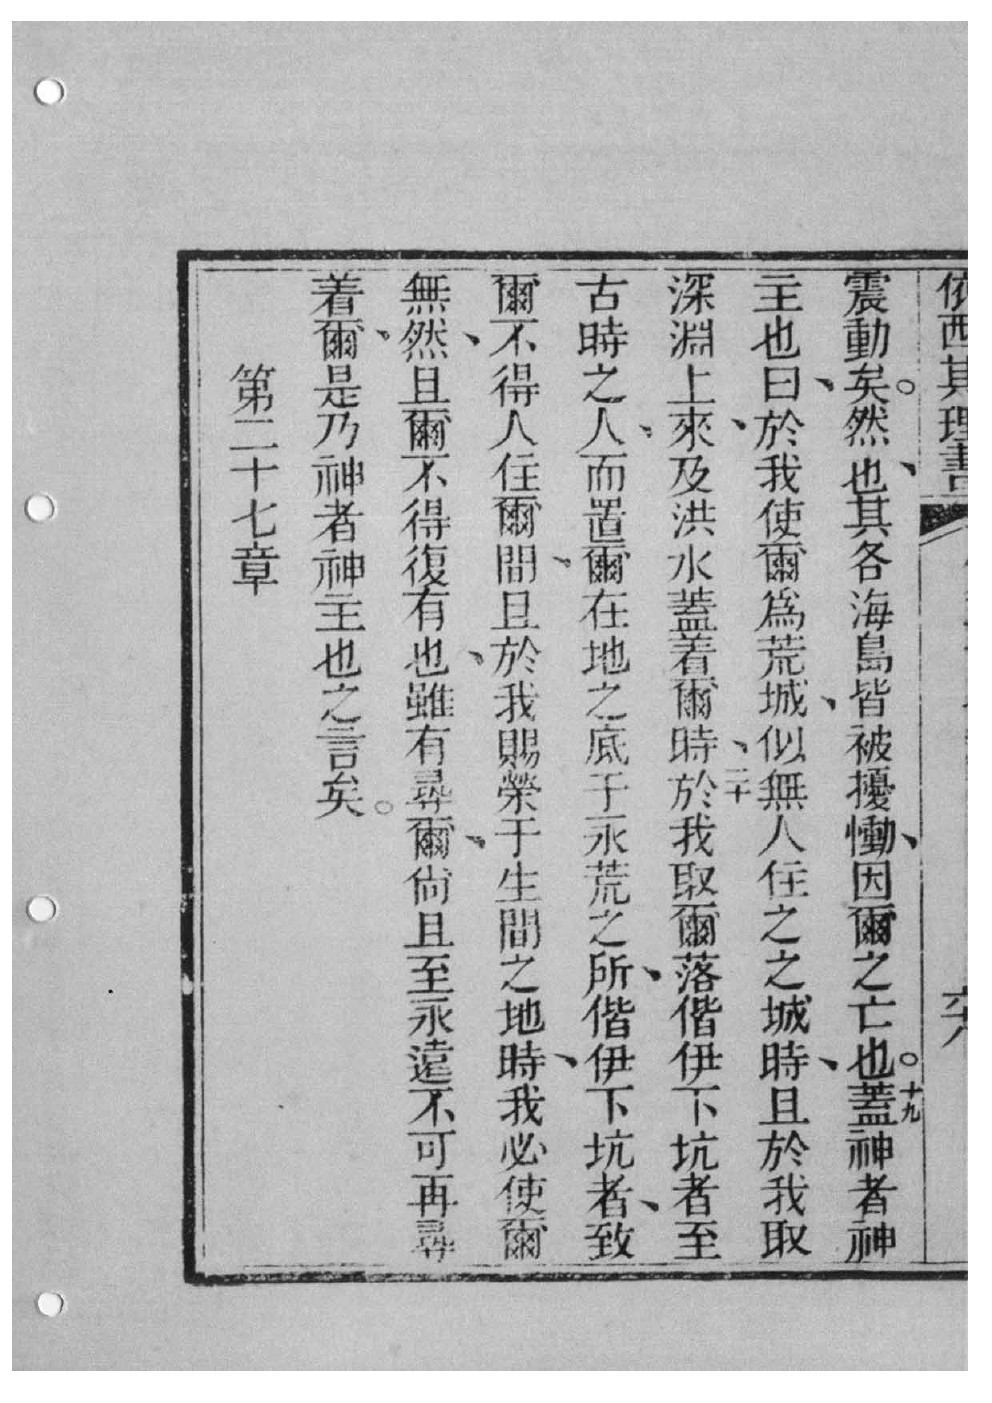 依西其理書
震動矣。然也、其各海島皆被擾慟、因爾之亡也。十九蓋神者神
主也曰、於我使爾為荒城、似無人住之之城時、且於我取
深淵上來、及洪水蓋着爾時、二十於我取爾落偕伊下坑者至
古時之人、而置爾在地之底于永荒之所、偕伊下坑者、致
爾不得人住爾間、且於我賜榮于生間之地時、我必使爾
無然、且爾不得復有也、雖有尋爾、尙且至永遠不可再尋
着爾、是乃神者神主也之言矣。
第二十七章